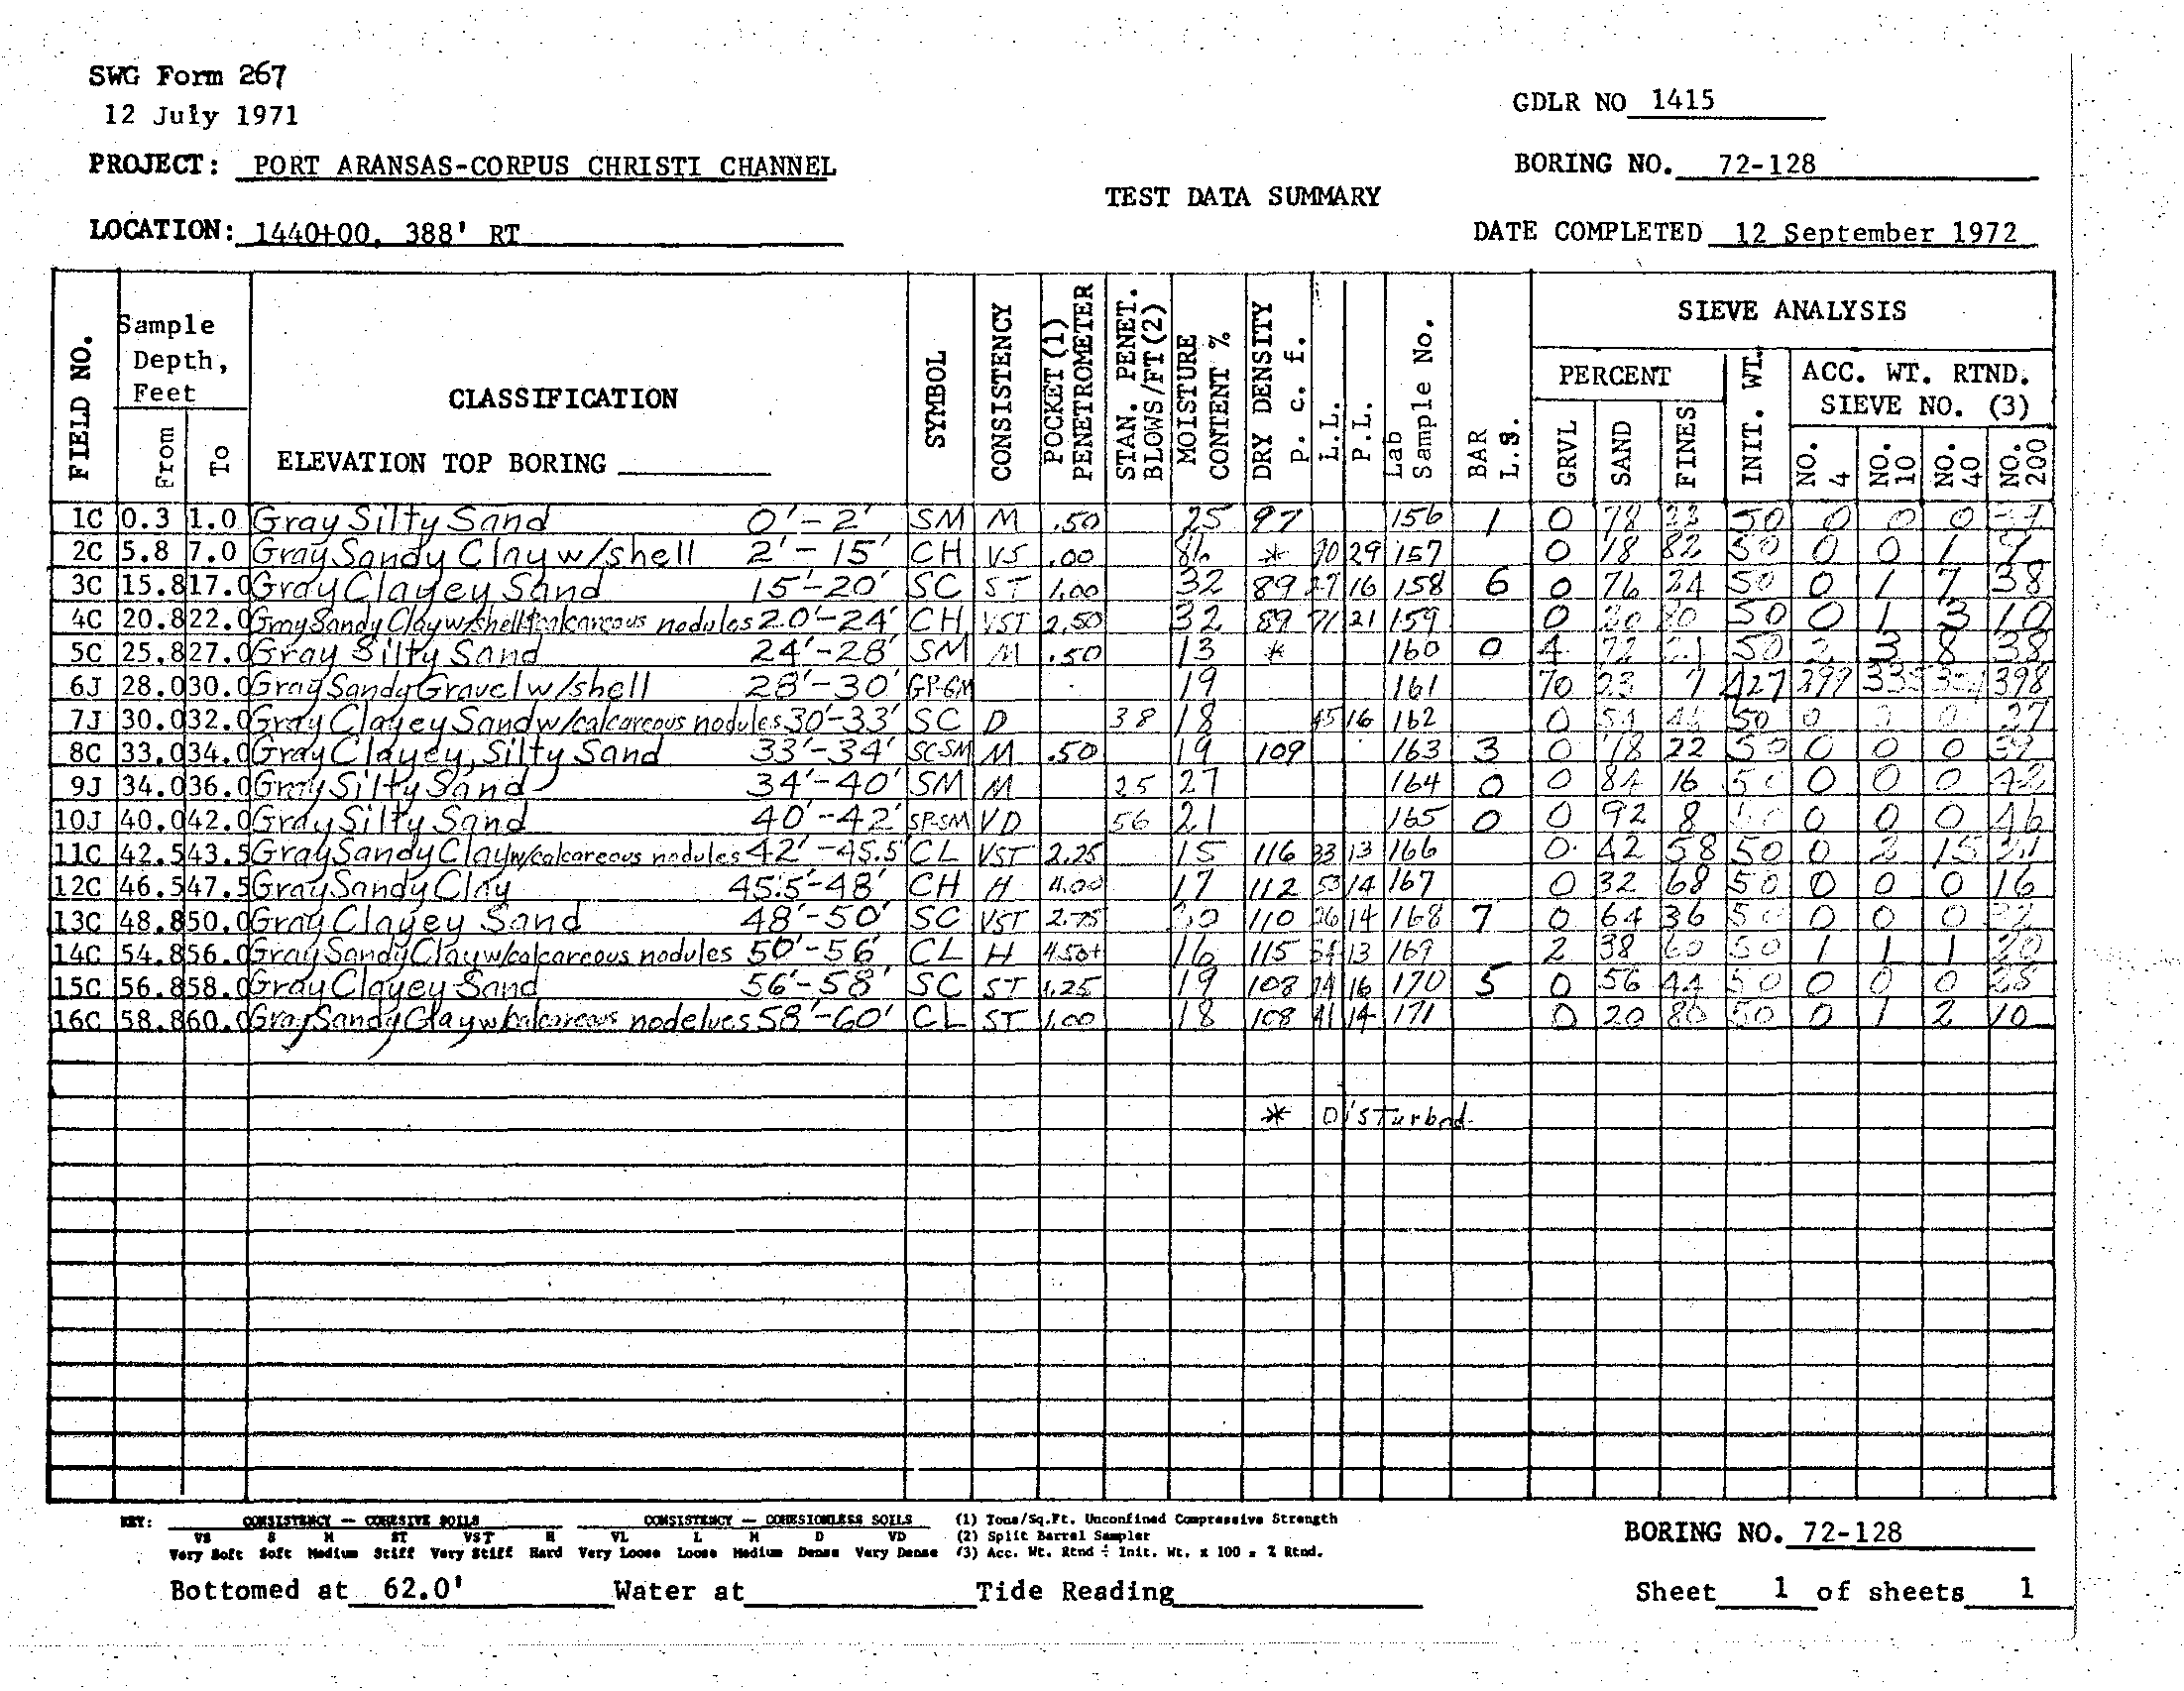 SWG Form 267
12 July 1971
GDLR NO 1415
PROJECT: PORT ARANSAS-CORPUS CHRISTI CHANNEL
BORING NO. 72-128
TEST DATA SUMMARY
LOCATION: 1440+00, 388' RT
DATE COMPLETED 12 September 1972
FIELD NO. Sample Depth, Feet From To CLASSIFICATION ELEVATION TOP BORING SYMBOL CONSISTENCY POCKET (1) PENETROMETER STAN. PENET. BLOWS/FT(2) MOISTURE CONTENT % DRY DENSITY p. c. f. L.L. P.L. Lab Sample No. BAR L.S. SIEVE ANALYSIS PERCENT GRVL SAND FINES INIT. WT. ACC. WT. RTND. SIEVE NO. (3) NO. 4 NO. 10 NO. 40 NO. 200
1C 0.3 1.0 Gray Silty Sand 0'-2' SM M .50 25 97 156 1 0 78 50 0 0 0
2C 5.8 7.0 Gray Sandy Clay w/shell 2'-15' CH VS .00 86 * 70 29 157 0 18 82 50 0 0 1
3C 15.8 17.0 Gray Clayey Sand 15'-20' SC ST 1.00 32 89 27 16 158 6 0 76 24 50 0 1 7 38
4C 20.8 22.0 Gray Sandy Clay w/shell & calcareous nodules 20'-24' CH VST 2.50 32 89 71 21 159 0 20 80 50 0 1 3 10
5C 25.8 27.0 Gray Silty Sand 24'-28' SM M .50 13 * 160 0 4 72 50 2 3 8 38
6J 28.0 30.0 Gray Sandy Gravel w/shell 28'-30' GP-GM 19 161 70 23 7 427 398
7J 30.0 32.0 Gray Clayey Sand w/calcareous nodules 30'-33' SC D 38 18 45 16 162 0 50 0 0 27
8C 33.0 34.0 Gray Clayey, Silty Sand 33'-34' SC-SM M .50 19 109 163 3 0 78 22 50 0 0 0 39
9J 34.0 36.0 Gray Silty Sand 34'-40' SM M 25 27 164 0 0 84 16 50 0 0 0 42
10J 40.0 42.0 Gray Silty Sand 40'-42' SP-SM VD 56 21 165 0 0 92 8 0 0 0 46
11C 42.5 43.5 Gray Sandy Clay w/calcareous nodules 42'-45.5' CL VST 2.25 15 116 33 13 166 0 42 58 50 0 2 15 21
12C 46.5 47.5 Gray Sandy Clay 45.5'-48' CH H 4.00 17 112 53 14 167 0 32 68 50 0 0 0 16
13C 48.8 50.0 Gray Clayey Sand 48'-50' SC VST 2.75 20 110 26 14 168 7 0 64 36 50 0 0 0 32
14C 54.8 56.0 Gray Sandy Clay w/calcareous nodules 50'-56' CL H 4.50+ 16 115 13 169 2 38 60 50 1 1 1 20
15C 56.8 58.0 Gray Clayey Sand 56'-58' SC ST 1.25 19 108 16 170 5 0 56 44 50 0 0 0 28
16C 58.8 60.0 Gray Sandy Clay w/calcareous nodelues 58'-60' CL ST 1.00 18 108 41 14 171 0 20 80 50 0 1 2 10
* Disturbed
KEY: CONSISTENCY -- COHESIVE SOILS CONSISTENCY -- COHESIONLESS SOILS (1) Tons/Sq.Ft. Unconfined Compressive Strength
VS S M ST VST H VL L M D VD (2) Split Barrel Sampler
Very Soft Soft Medium Stiff Very Stiff Hard Very Loose Loose Medium Dense Very Dense (3) Acc. Wt. Rtnd ÷ Init. Wt. x 100 = % Rtnd.
BORING NO. 72-128
Bottomed at 62.0' Water at Tide Reading Sheet 1 of sheets 1